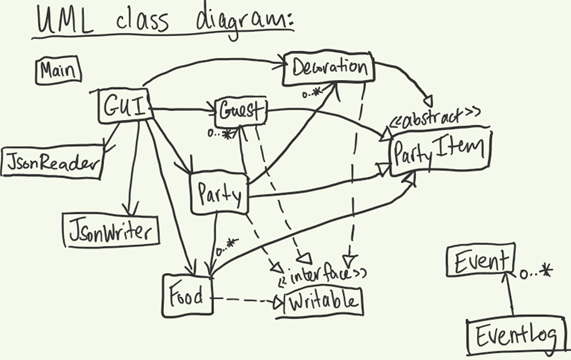 UML class diagram:
Main
Decoration
GUI
Guest
0..*
0..*
<<abstract>>
PartyItem
JsonReader
Party
JsonWriter
0..*
Food
<<interface>>
Writable
Event
0..*
EventLog